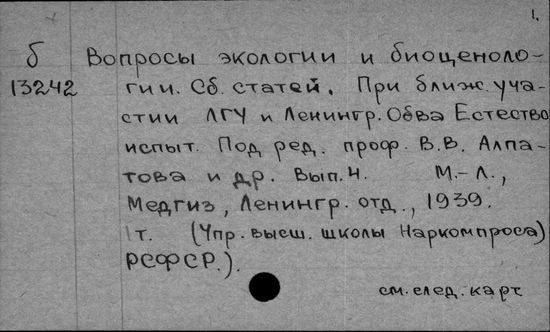 1.
б Вопросы экологии и биоценоло-
13242 гии. Сб. статей. При ближ. уча-
стии ЛГУ и Ленингр. Обва Естество
испыт. Под ред. проф. В.В. Алпа-
това и др. Вып. 4. М.-Л.,
Медгиз, Ленингр. отд., 1939.
1т. (Упр. высш. школы Наркомпроса)
РСФСР.).
см. след. карт